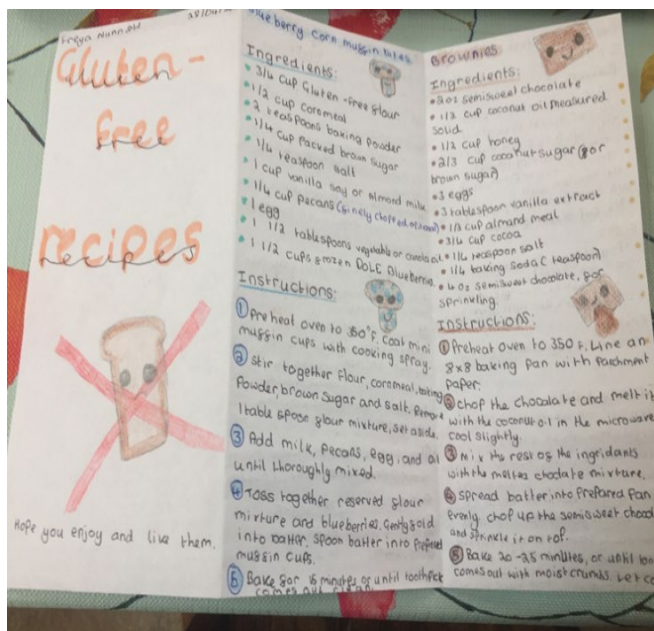 Freya
Gluten-
free
recipes
Hope you enjoy and like them.
Blueberry corn muffin
Ingredients:
• 3/4 cup Gluten-free flour
• 1/2 cup cornmeal
• 2 teaspoons baking powder
• 1/4 cup packed brown sugar
• 1/4 teaspoon salt
• 1 cup vanilla soy or almond milk
• 1/4 cup pecans (finely chopped
• 1 egg
• 1 1/2 tablespoons vegetable or canola oil
• 1 1/2 cups frozen DOLE Blueberries.
Instructions:
① Preheat oven to 350°F. Coat mini
muffin cups with cooking spray.
② Stir together flour, cornmeal, baking
Powder, brown sugar and salt. Remove
1 table spoon flour mixture, set aside.
③ Add milk, pecans, egg, and oil
until thoroughly mixed.
④ Toss together reserved flour
mixture and blueberries. Gently fold
into batter. Spoon batter into prepared
muffin cups.
⑤ Bake for 15 minutes or until toothpick
comes out clean.
Brownies
Ingredients:
• 2oz semisweet chocolate
• 1/2 cup coconut oil measured
solid.
• 1/2 cup honey
• 2/3 cup coconut sugar (or
brown sugar)
• 3 eggs
• 3 tablespoon vanilla extract
• 1/2 cup almond meal
• 3/4 cup cocoa
• 1/4 teaspoon salt
• 1/4 baking soda (teaspoon)
• 4 oz semisweet chocolate, for
sprinkling.
Instructions:
① Preheat oven to 350 F. Line an
8x8 baking pan with parchment
paper.
② chop the chocolate and melt it
with the coconut oil in the microwave
cool slightly.
③ mix the rest of the ingridants
with the melted choclate mixture.
④ spread batter into prepared pan
evenly. chop up the semisweet
and sprinkle it on top.
⑤ Bake 20-25 minutes, or until
comes out with moist crumbs. Let